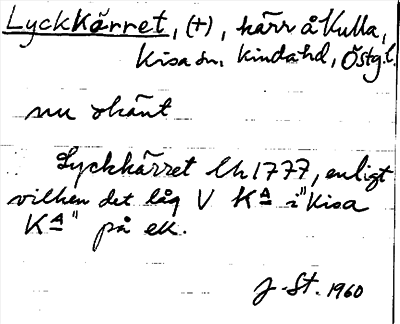 Lyckkärret, (+), kärr å Kulla,
Kisa sn, Kinda hd, Östgl.
nu okänt
Lyckkärret lh 1777, enligt
vilken det låg V KA i "Kisa
KA" på ek.
J. St. 1960